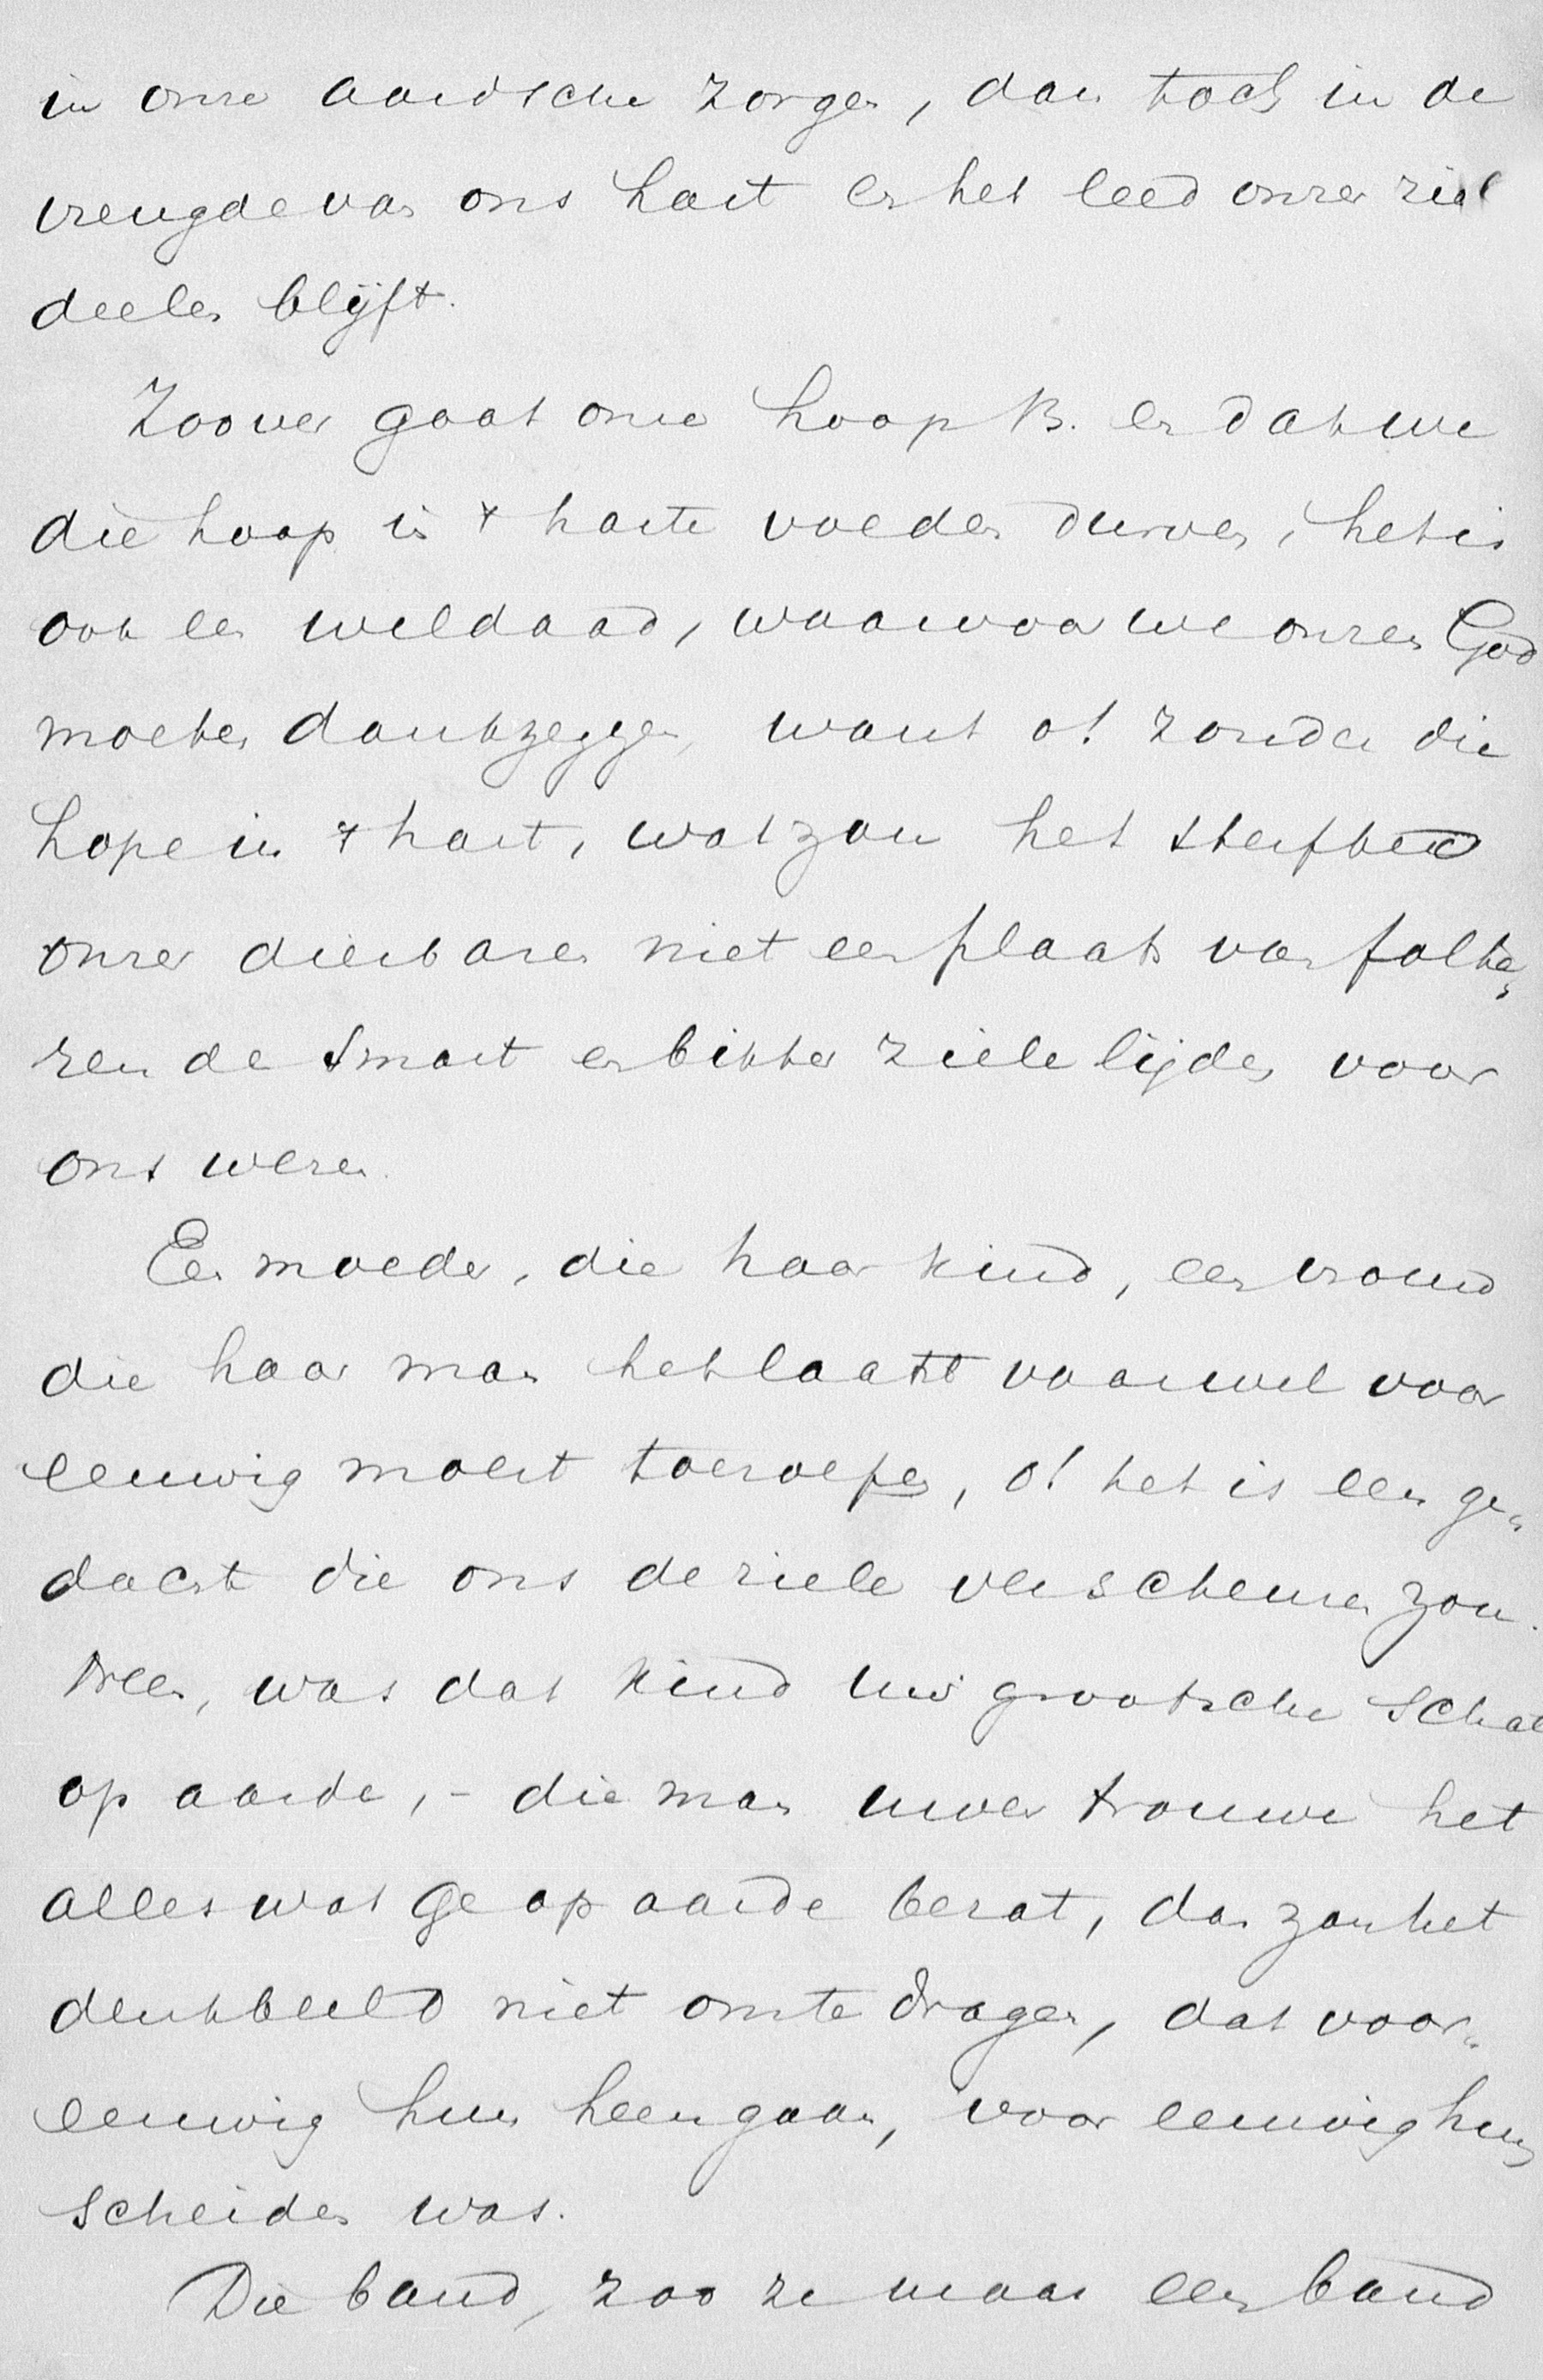 in onze aardsche zorgen, dan toch in de
vreugde van ons hart en het leed onzer ziel
deelen blijft.
Zoover gaat onze hoop B. en dat we
die hoop in 't harte voeden durven, het is
ook een weldaad, waarvoor we onzen God
moeten dankzeggen, want o! zonder die
hope in 't hart, wat zou het sterfbed
onzer dierbaren niet een plaats van folte„
rende smart en bitter ziele lijden voor
ons wezen.
Een moeder, die haar kind, een vrouw
die haar man het laatst vaarwel voor
eeuwig moest toeroepen, o! het is een ge„
dacht die ons de ziele verscheuren zou.
Neen, was dat kind uw grootsche schat
op aarde, - die man uwer trouwe het
alles wat ge op aarde bezat, dan zou het
denkbeeld niet om te dragen, dat voor„
eeuwig hun heengaan, voor eeuwig hun
scheiden was.
Die band, zoo ze maar een band